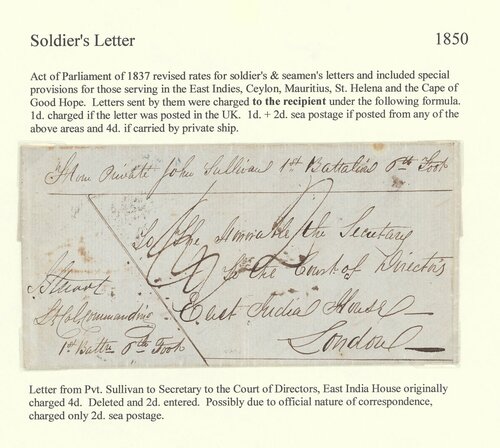 Soldier's Letter 1850
Act of Parliament of 1837 revised rates for soldier's & seamen's letters and included special
provisions for those serving in the East Indies, Ceylon, Mauritius, St. Helena and the Cape of
Good Hope. Letters sent by them were charged to the recipient under the following formula.
1d. charged if the letter was posted in the UK. 1d. + 2d. sea postage if posted from any of the
above areas and 4d. if carried by private ship.
From Private John Sullivan 1st Battalion 6th Foot
To The Honorable the Secretary
To the Court of Directors
East India House
London
Lt Col Commanding
1st Battn 6th Foot
Letter from Pvt. Sullivan to Secretary to the Court of Directors, East India House originally
charged 4d. Deleted and 2d. entered. Possibly due to official nature of correspondence,
charged only 2d. sea postage.